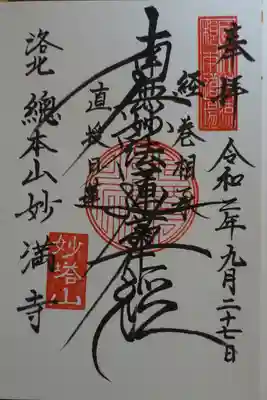 奉拝
令和二年九月二十七日
経巻相承
南無妙法蓮華経
直授日蓮
洛北 總本山妙満寺
妙塔山